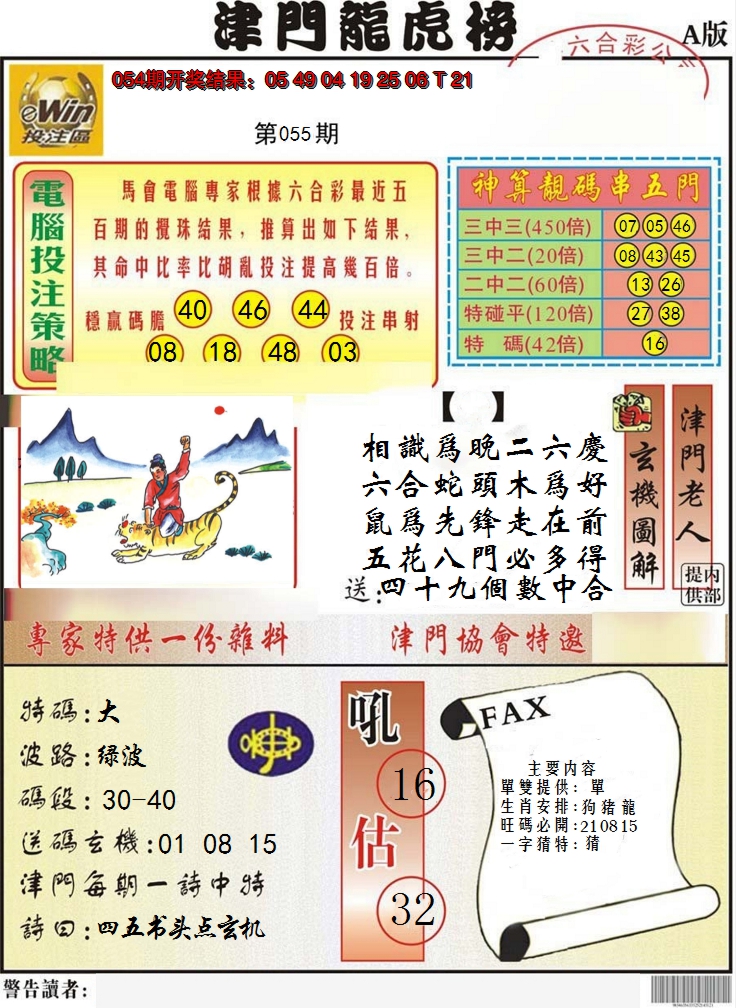 津門龍虎榜
A版
六合彩公司
054期开奖结果：05 49 04 19 25 06 T 21
eWin
投注區
第055期
電腦投注策略
馬會電腦專家根據六合彩最近五
百期的攪珠结果，推算出如下结果，
其命中比率比胡亂投注提高幾百倍。
穩贏碼膽 40 46 44 投注串射
08 18 48 03
神算靚碼串五門
三中三(450倍) 07 05 46
三中二(20倍) 08 43 45
二中二(60倍) 13 26
特碰平(120倍) 27 38
特 碼(42倍) 16
【 】
相識爲晚二六慶
六合蛇頭木爲好
鼠爲先鋒走在前
五花八門必多得
送:四十九個數中合
玄機圖解
津門老人
内部提供
專家特供一份雜料
津門協會特邀
特碼:大
波路:绿波
碼段:30-40
送碼玄機:01 08 15
津門每期一詩中特
詩曰:四五书头点玄机
吼
16
估
32
FAX
主要内容
單雙提供：單
生肖安排:狗豬龍
旺碼必開:210815
一字猜特:猜
警告讀者: